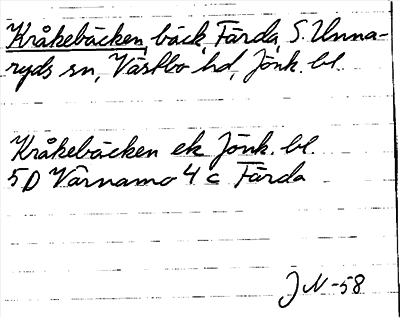 Kråkebäcken, bäck, Färda, S. Unna-
ryds sn, Västbo hd, Jönk. bl.
Kråkebäcken ek Jönk. bl.
5D Värnamo 4 c Färda
J N -58